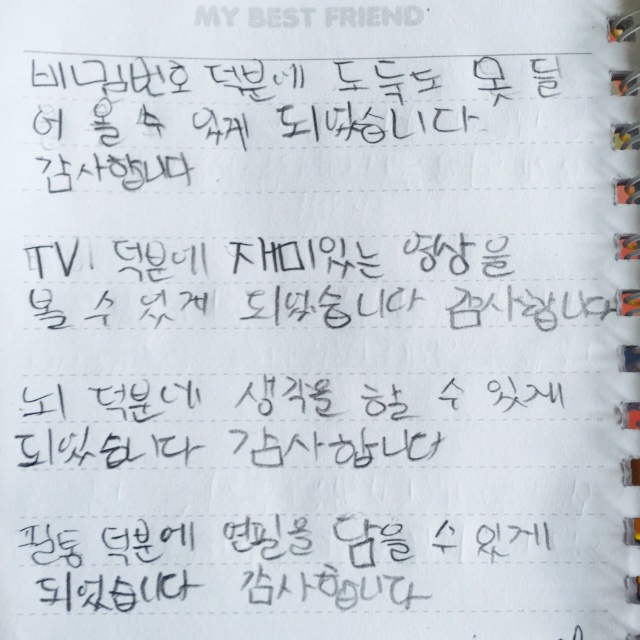 MY BEST FRIEND
비밀번호 덕분에 도둑도 못 들
어 올 수 있게 되었습니다
감사합니다
TV 덕분에 재미있는 영상을
볼 수 있게 되었습니다 감사합니다
뇌 덕분에 생각을 할 수 있게
되었습니다 감사합니다
필통 덕분에 연필을 담을 수 있게
되었습니다 감사합니다